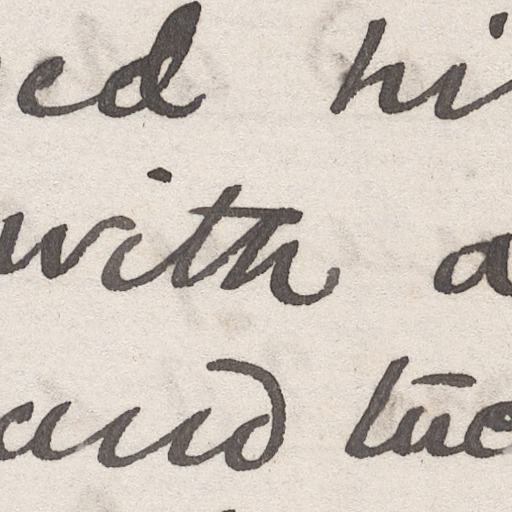 ed hi
with a
and tue